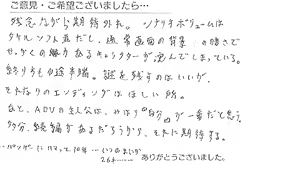 ご意見・ご希望ございましたら…
残念ながら期待外れ。シナリオボリュームは
タケルソフト並だし、通常画面の背景の暗さで
せっかくの魅力あるキャラクターが沈んでしまっている。
終り方も中途半端。謎を残すのはいいが、
それなりのエンディングはほしい所。
あと、ADVの主人公は、やはり"自分"が一番だと思う。
多分、続編があるだろうから、それに期待する。
…いつのまにか
26才……
ありがとうございました。